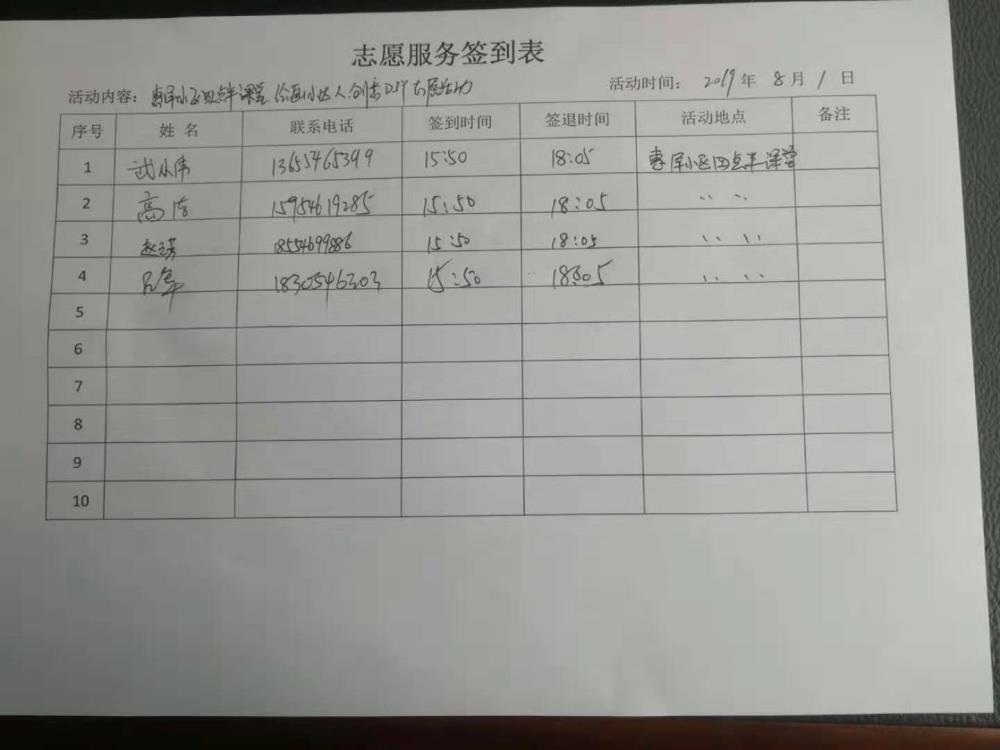 志愿服务签到表
活动内容: 惠军小区四点半课堂 绘画小达人创意DIY大展活动 活动时间: 2019年 8月 1日
序号 姓名 联系电话 签到时间 签退时间 活动地点 备注
1 武从伟 13655465399 15:50 18:05 惠军小区四点半课堂
2 高洁 15954619285 15:50 18:05 〃 〃
3 赵 18554699886 15:50 18:05 〃 〃
4 1830546303 15:50 18:05 〃 〃
5
6
7
8
9
10